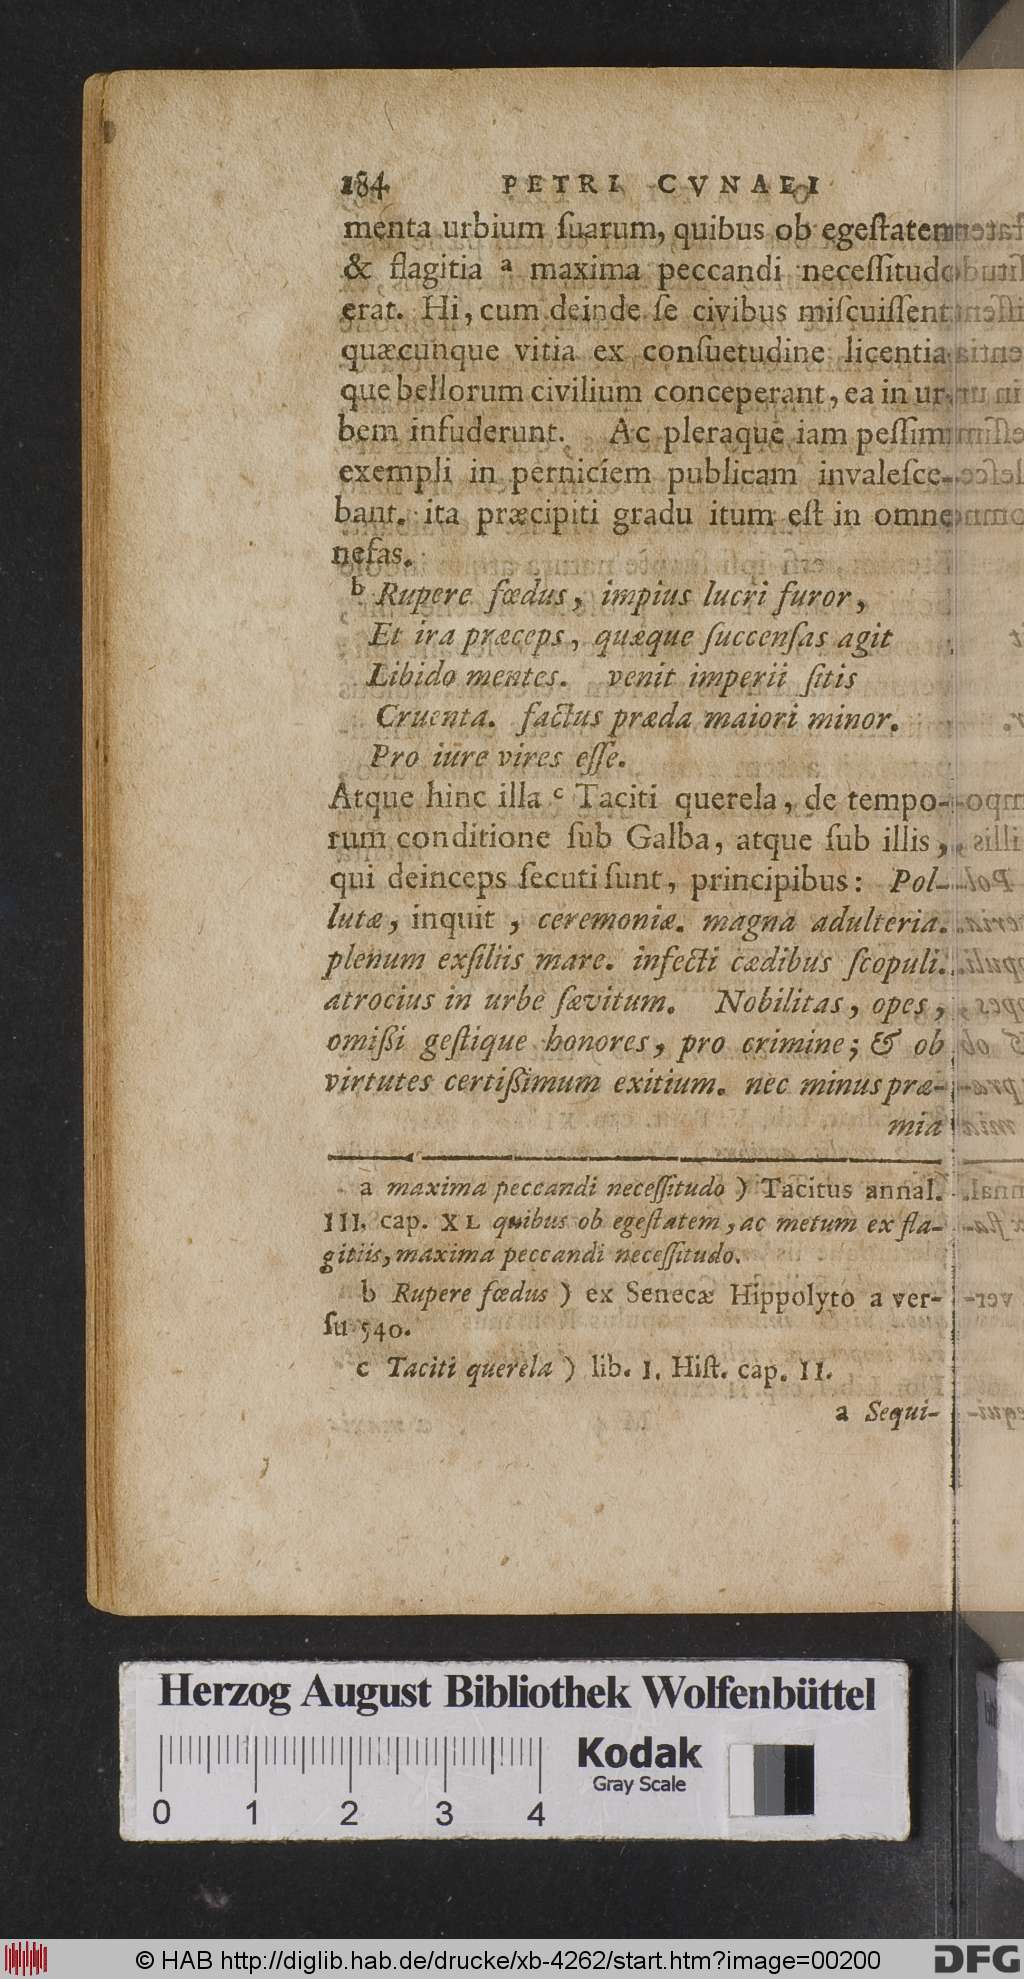 184 PETRI CVNAEI
menta urbium ſuarum, quibus ob egeſtatem
& flagitia a maxima peccandi neceſſitudo
erat. Hi, cum deinde ſe civibus miſcuiſſent,
quæcunque vitia ex conſuetudine licentia-
que bellorum civilium conceperant, ea in ur-
bem infuderunt. Ac pleraque iam peſſimi
exempli in perniciem publicam invaleſce-
bant. ita præcipiti gradu itum eſt in omne
nefas.
b Rupere fœdus, impius lucri furor,
Et ira præceps, quæque ſuccenſas agit
Libido mentes. venit imperii ſitis
Cruenta. factus præda maiori minor.
Pro iure vires eſſe.
Atque hinc illa c Taciti querela, de tempo-
rum conditione ſub Galba, atque ſub illis,
qui deinceps ſecuti ſunt, principibus: Pol-
lutæ, inquit, ceremoniæ. magna adulteria.
plenum exſiliis mare. infecti cædibus ſcopuli.
atrocius in urbe ſævitum. Nobilitas, opes,
omißi geſtique honores, pro crimine; & ob
virtutes certißimum exitium. nec minus præ-
mia
a maxima peccandi neceſſitudo ) Tacitus annal.
III. cap. XL quibus ob egeſtatem, ac metum ex fla-
gitiis, maxima peccandi neceſſitudo.
b Rupere fœdus ) ex Senecæ Hippolyto a ver-
ſu 540.
c Taciti querela ) lib. I. Hiſt. cap. II.
a Sequi-
Herzog August Bibliothek Wolfenbüttel
Kodak
Gray Scale
0 1 2 3 4
© HAB http://diglib.hab.de/drucke/xb-4262/start.htm?image=00200
DFG